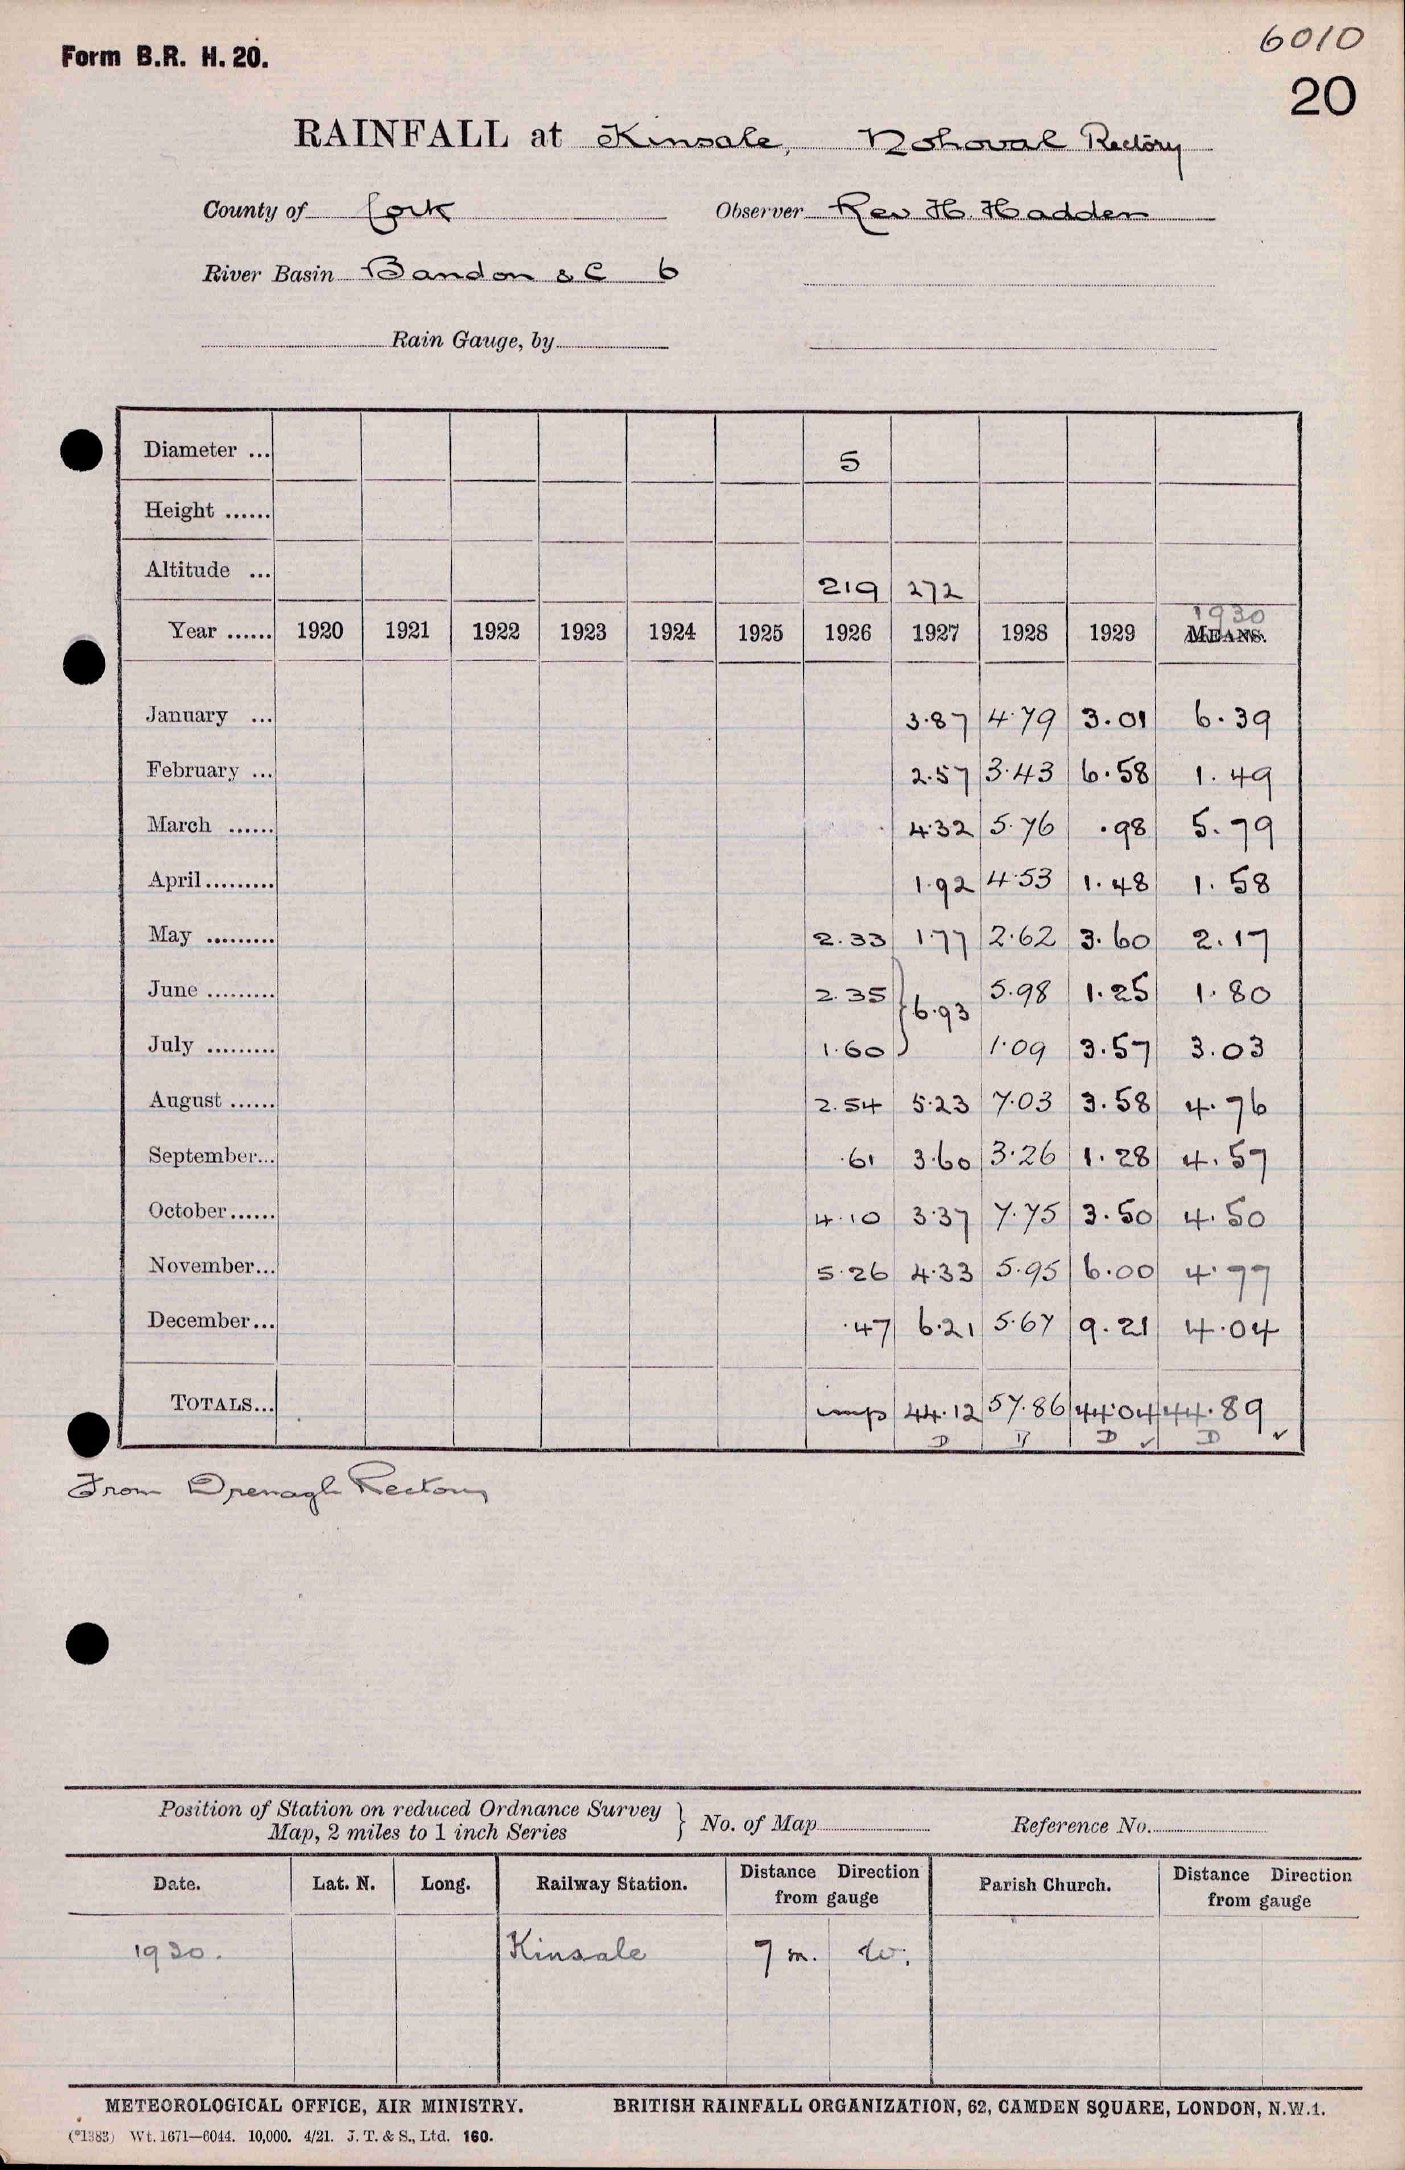 6010
Form B.R. H. 20.
20
RAINFALL at Kinsale, Nohoval Rectory
County of Cork Observer Rev H. Hadden
River Basin Bandon &C 6
Rain Gauge, by
Diameter ... 5
Height ......
Altitude ... 219 272
1930
Year ...... 1920 1921 1922 1923 1924 1925 1926 1927 1928 1929 MEANS.
January ... 3.87 4.79 3.01 6.39
February ... 2.57 3.43 6.58 1.49
March ...... 4.32 5.76 .98 5.79
April......... 1.92 4.53 1.48 1.58
May ......... 2.33 1.77 2.62 3.60 2.17
June ......... 2.35 } 6.93 5.98 1.25 1.80
July ......... 1.60 1.09 3.57 3.03
August ...... 2.54 5.23 7.03 3.58 4.76
September... .61 3.60 3.26 1.28 4.57
October...... 4.10 3.37 7.75 3.50 4.50
November... 5.26 4.33 5.95 6.00 4.77
December... .47 6.21 5.67 9.21 4.04
TOTALS... imp 44.12 57.86 44.04 44.89
D D D ✓ D ✓
From Drenagh Rectory
Position of Station on reduced Ordnance Survey
Map, 2 miles to 1 inch Series } No. of Map Reference No.
Date. Lat. N. Long. Railway Station. Distance Direction from gauge Parish Church. Distance Direction from gauge
1930. Kinsale 7 m. W.
METEOROLOGICAL OFFICE, AIR MINISTRY. BRITISH RAINFALL ORGANIZATION, 62, CAMDEN SQUARE, LONDON, N.W.1.
(*1383) Wt. 1671—6044. 10,000. 4/21. J. T. & S., Ltd. 160.